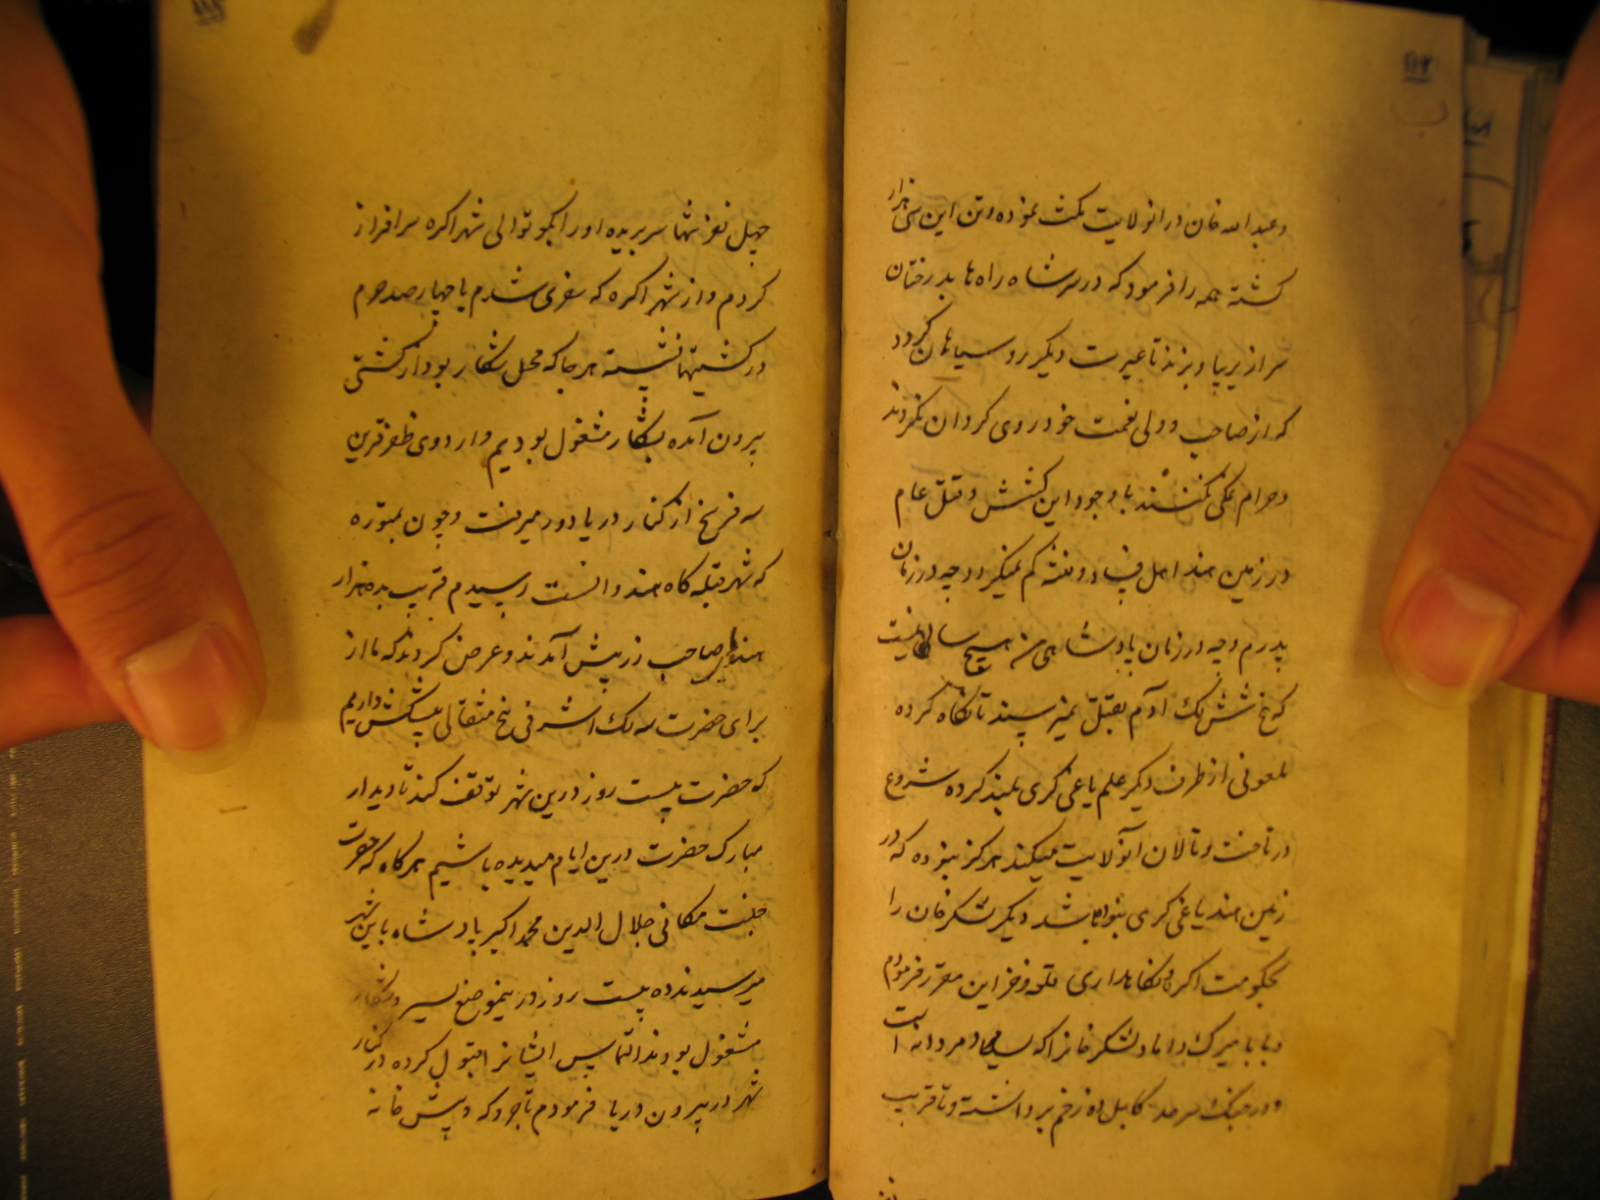 وعبدالله خان در انولایت مکث نموده و تن این سی هزار
کشته همه را فرمود که در سر شاه راه ها بدرختان
سرازیر بیاویزند تا عبرت دیگر روسیاهان گردد
که از صاحب و ولی نعمت خود روی گردان نگردند
و حرام نمکی نکنند با وجود این کشش و قتل عام
در زمین هند اهل فساد و فتنه کم نمیگردد چه در زمان
پدرم و چه در زمان پادشاهی من هیچ سالی نیست
که پنج شش لک آدم بقتل نمیرسند تا نگاه کرده
ملعونی از طرف دیگر علم یاغی گری بلند کرده شروع
در تاخت و تالان آنولایت میکند هرگز نبوده که در
زمین هند یاغی گری نبوده باشد دیگر لشکر خان را
بحکومت اکره و نگاهداری قلعه و خزاین مقرر فرمودم
و بابا میرک داماد لشکر خانرا که مردانه است
و در جنگ سرحد کابل ده زخم برداشته و تا قریب
چهل نفر تنها سر بریده او را بکوتوالی شهر اکره سرافراز
کردم و از شهر اکره که سفری شدم با چهار صد حرم
در کشتیها نشسته هر جا که محل شکار بود از کشتی
بیرون آمده بشکار مشغول بودیم و اردوی ظفر قرین
سه فرسخ از کنار دریا دور میرفت و چون بمتوره
که شهر قبله کاه هندوانست رسیدم قریب بده هزار
هندوهای صاحب زر پیش آمدند و عرض کردند که ما از
برای حضرت سه لک اشرفی پنج مثقالی پیشکش داریم
که حضرت بیست روز درین شهر توقف کند تا دیدار
مبارک حضرت درین ایام میدیده باشیم هرگاه که حضرت
جنت مکانی جلال الدین محمد اکبر پادشاه باین شهر
میرسیدند ده بیست روز در بنموضع بسیر و شکار
مشغول بودند التماس ایشانرا قبول کرده در کنار
شهر در بیرون دریا فرمودم تا جرو که و پیش خانه